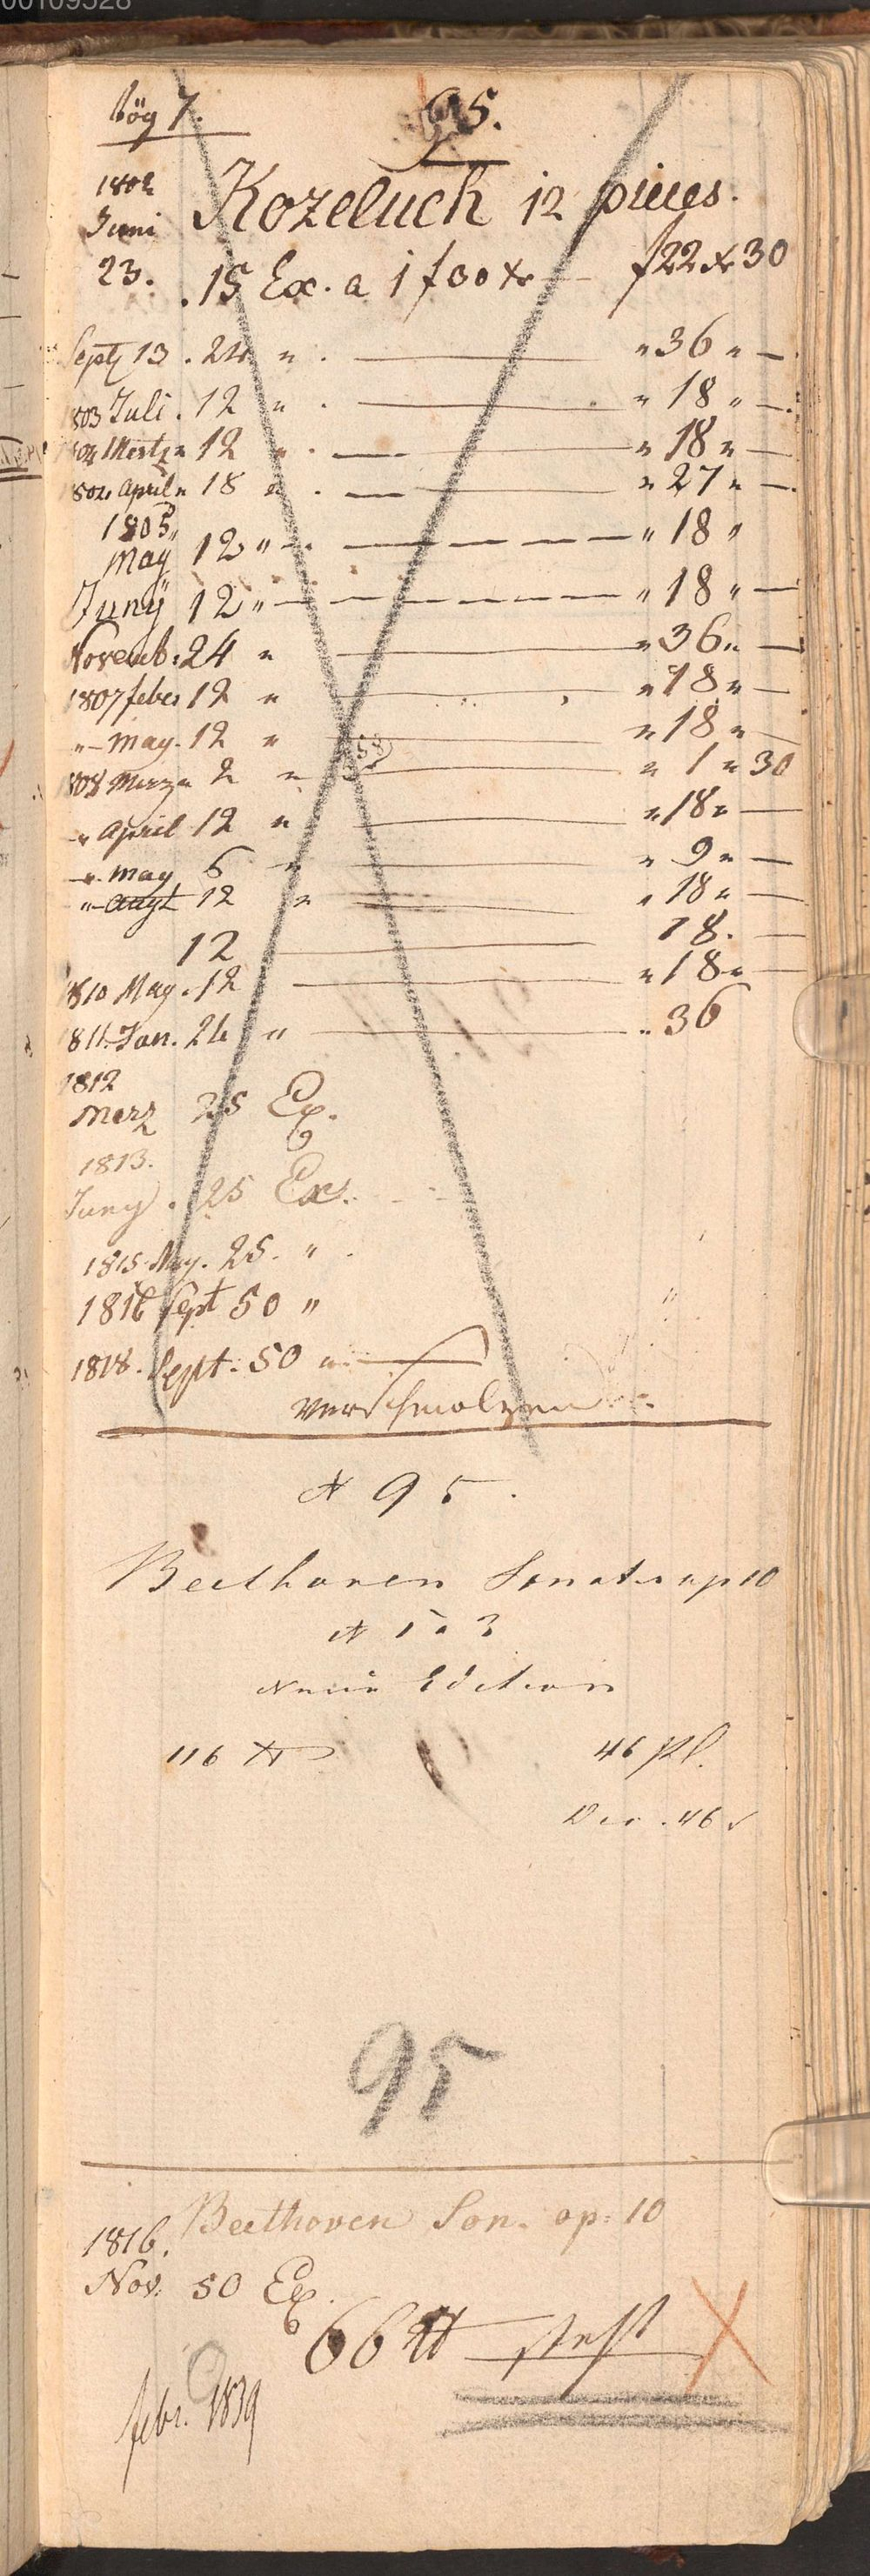 00109528
bög 7.
95.
1802
Juni Kozeluch 12 pieces.
23. 15 Ex. a 1 f 30 xr — f 22 xr 30
Sept 13 . 24 " . — " 36 " —
1803 Juli . 12 " . — " 18 " —
1804 Mertz " 12 " . — " 18 " —
1804 April " 18 " . — " 27 " —
1805 "
May 12 " — " 18 "
Junÿ 12 " — " 18 " —
Novemb: 24 " — " 36 " —
1807 feber 12 " — " 18 " —
" — May . 12 " — " 18 " —
1808 Merz " 2 " — " 1 " 30
" April 12 " — " 18 " —
" May 6 " — " 9 " —
" — Augt 12 " — " 18 " —
12 — 18. —
1810 May . 12 — " 18 " —
1811 Jan. 24 " — " 36
1812
Merz 25 Ex.
1813.
Juny . 25 Ex.
1815 May. 25. " .
1816 Sept 50 "
1818. Sept: 50 " —
verschmolzen
N 95.
Beethoven Sonaten op 10
N 1 a 3
Neue Edition
116 ℔ 46 Pl.
46
95
Beethoven Son. op: 10
1816.
Nov: 50 Ex.
66 ℔
febr. 1839